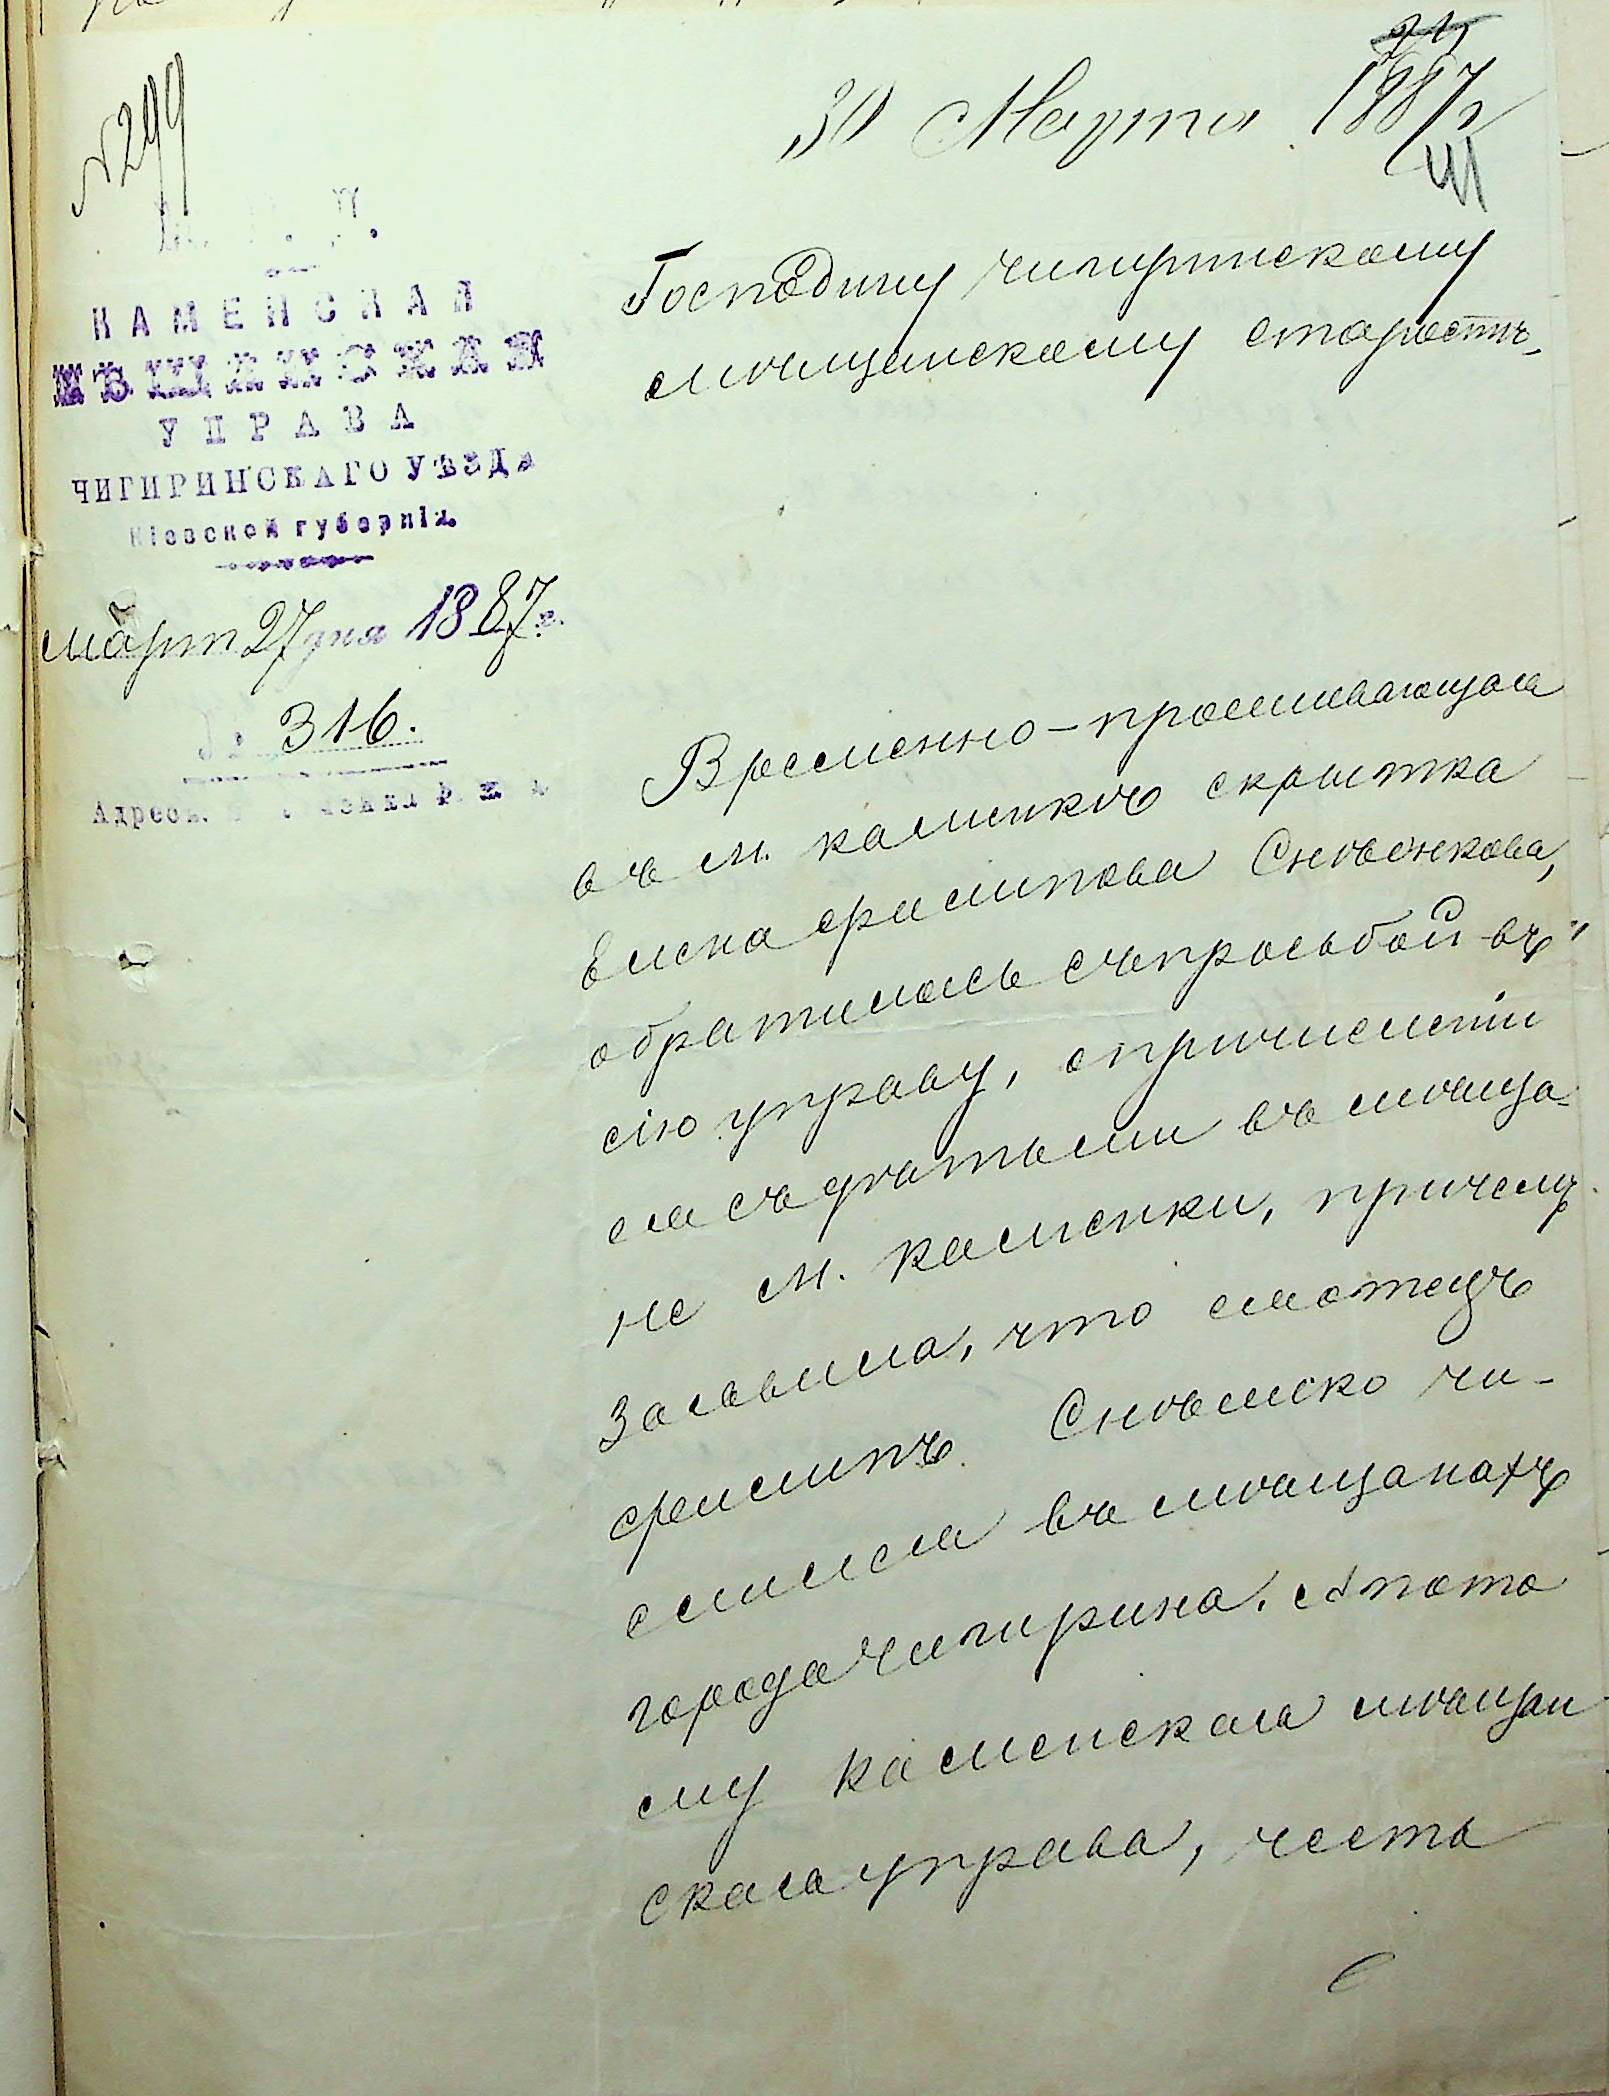 №299
30 Марта 1887 г
М. В. Д.
КАМЕНСКАЯ
МѢЩАНСКАЯ
УПРАВА
ЧИГИРИНСКАГО УѢЗДА
Кіевской губерніи.
Март 27 дня 1887 г.
№ 316.
Адресъ.
Господину Чигиринскому
мѣщанскому старостѣ
Временно-проживающая
въ м. Каменкѣ
Елена Филипова
обратилась съ просьбой въ
сію управу, опричислѣніи
ея съ дѣтьми въ мѣща-
не м. Каменки, причемъ
заявила, что ея отецъ
Филипъ чи-
слился въ мѣщанахъ
города Чигирина. А пото
му Каменская мѣщан
ская управа, честь